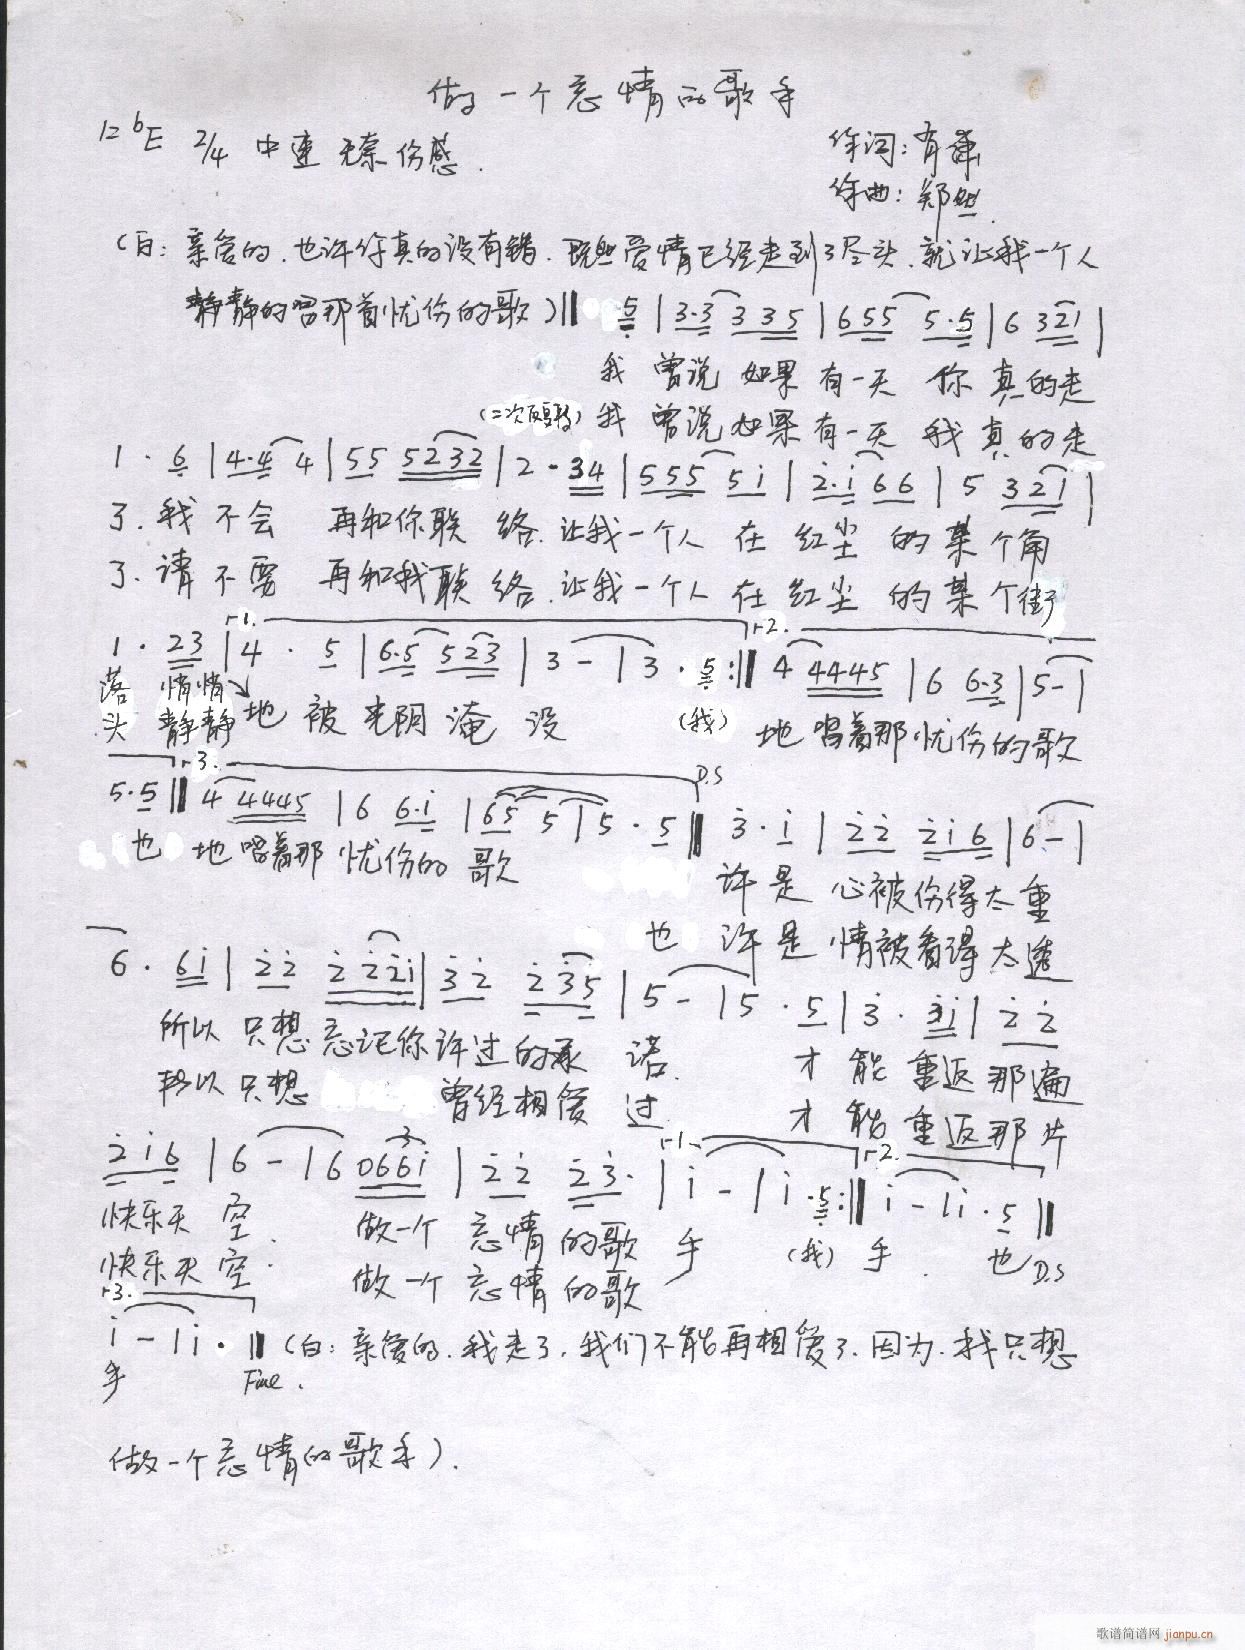 做一个忘情的歌手
1=ᵇE 2/4 中速 无奈伤感.
作词:有
作曲:郑然.
(白: 亲爱的.也许你真的没有错.既然爱情已经走到了尽头.就让我一个人
静静的唱那首忧伤的歌)‖ 5 | 3·3 3 3 5 | 6 5 5 5·5 | 6 3 2 1 |
我 曾说 如果 有一天 你 真的走
(二次反复转) 我 曾说 如果 有一天 我 真的走
1 · 6 | 4·4 4 | 5 5 5 2 3 2 | 2 · 3 4 | 5 5 5 5 i | 2·i 6 6 | 5 3 2 1 |
了. 我 不会 再和你联 络. 让我一个人 在 红尘 的 某个角
了. 请 不要 再和我联 络. 让我一个人 在 红尘 的 某个街
1 · 2 3 | 4 · 5 | 6·5 5 2 3 | 3 - | 3 · 5 :‖ 4 4 4 4 5 | 6 6·3 | 5 - |
落 悄悄 地 被 光阴 淹 没 (我) 地 唱着那 忧伤的歌
头 静静
5·5 ‖ 4 4 4 4 5 | 6 6·i | 6 5 5 | 5 · 5 ‖ 3 · i | 2 2 2 i 6 | 6 - |
1.
2.
3.
D.S
也 地 唱着那 忧伤的 歌
许是 心被伤得太重
也 许是 情被看得太透
6 · 6 i | 2 2 2 2 2 i | 3 2 2 3 5 | 5 - | 5 · 5 | 3 · 3 i | 2 2
所以 只想 忘记你许过的承 诺. 才 能 重返 那遍
所以 只想 曾经相爱 过 才 能 重返 那片
2 i 6 | 6 - | 6 0 6 6 i | 2 2 2 3 · | i - | i · 5 :‖ i - | i · 5 ‖
3
1.
2.
快乐天 空. 做一个 忘情 的歌 手 (我) 手 . 也 D.S
快乐天 空. 做一个 忘情 的歌
3.
i - | i · ‖ (白: 亲爱的.我走了.我们不能再相爱了.因为.我只想
手 Fine.
做一个忘情的歌手).
歌谱简谱网 jianpu.cn